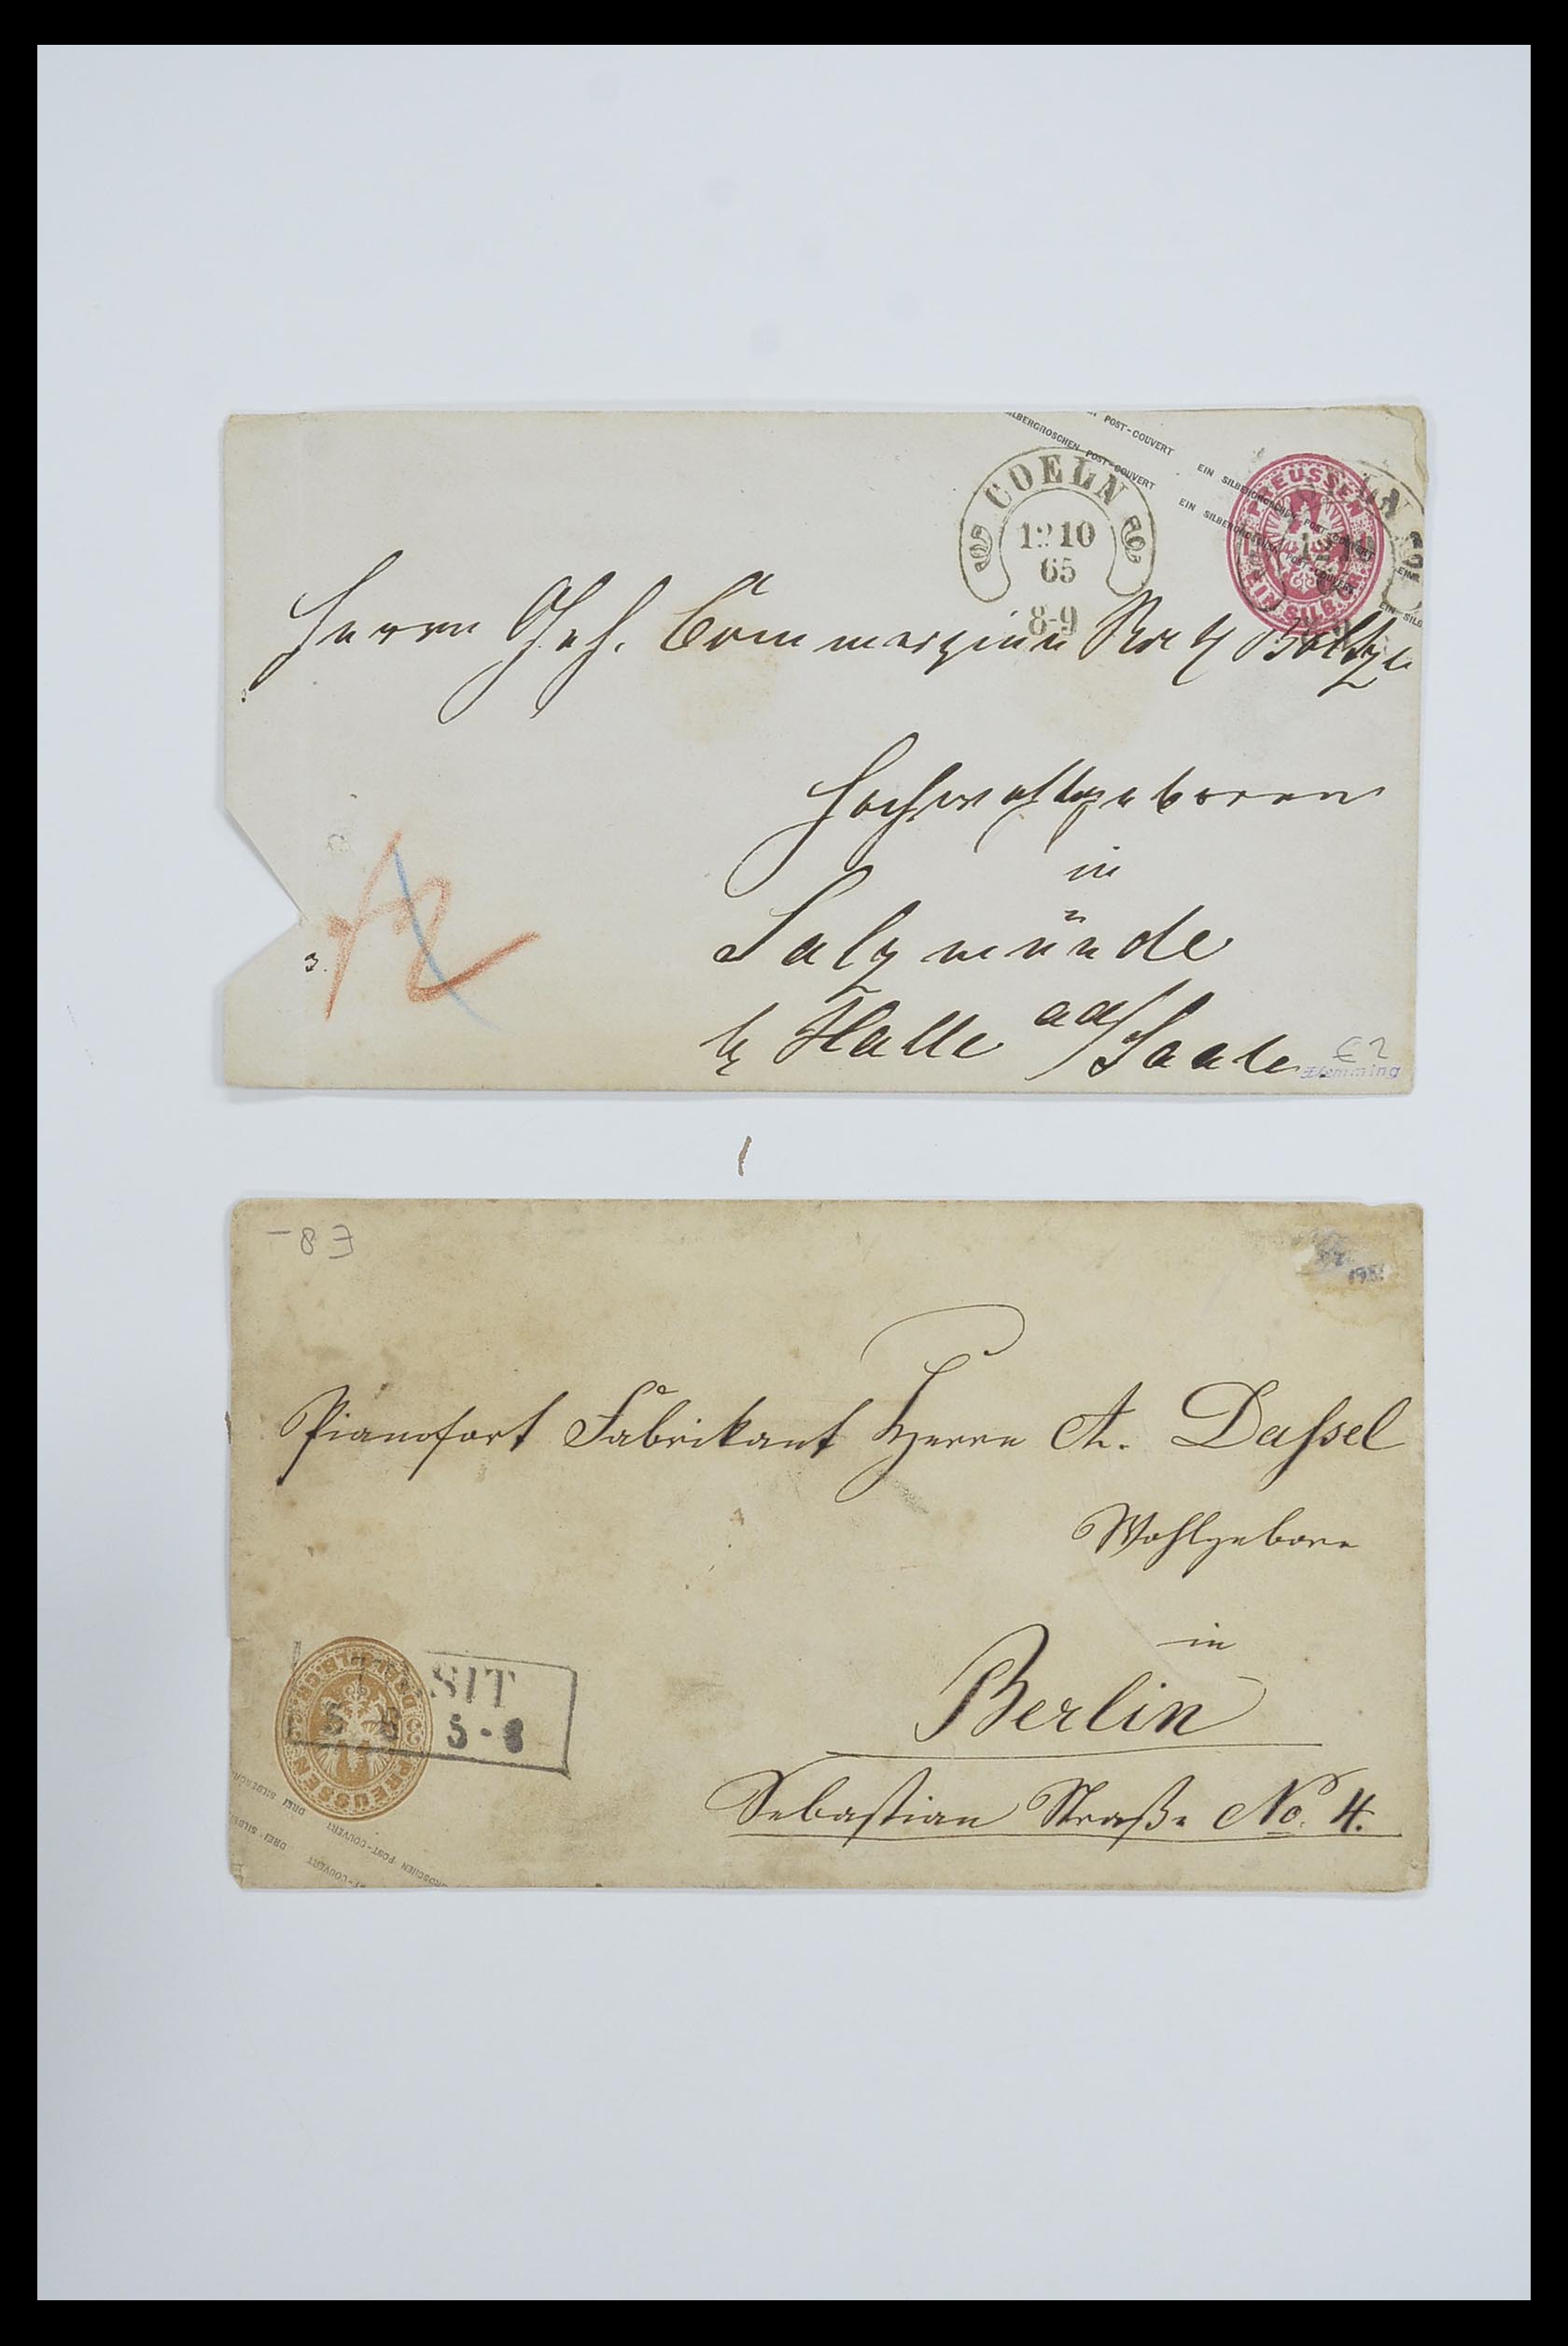 SILBERGROSCHEN POST-COUVERT
POST-COUVERT EIN SILBERGROSCHEN POST-COUVERT
EIN SILBERGROSCHEN POST-COUVERT EIN SILB
PREUSSEN
EIN SILB. GR.
COELN
12 10
65
8-9
Herrn Geh. Commerzien Rath Boltze
Hochwohlgeboren
in
Salzmünde
b/ Halle a/d Saale
3.
12
€ 2
Flemming
€ 8-
Pianofort Fabrikant Herrn A. Dassel
Wohlgeboren
in
Berlin
Sebastian Straße No. 4.
SIT
5 - 8
PREUSSEN
DREI SILB. GR.
DREI SILBERGR
GROSCHEN POST-COUVERT
DREI SILB
T-COUVERT